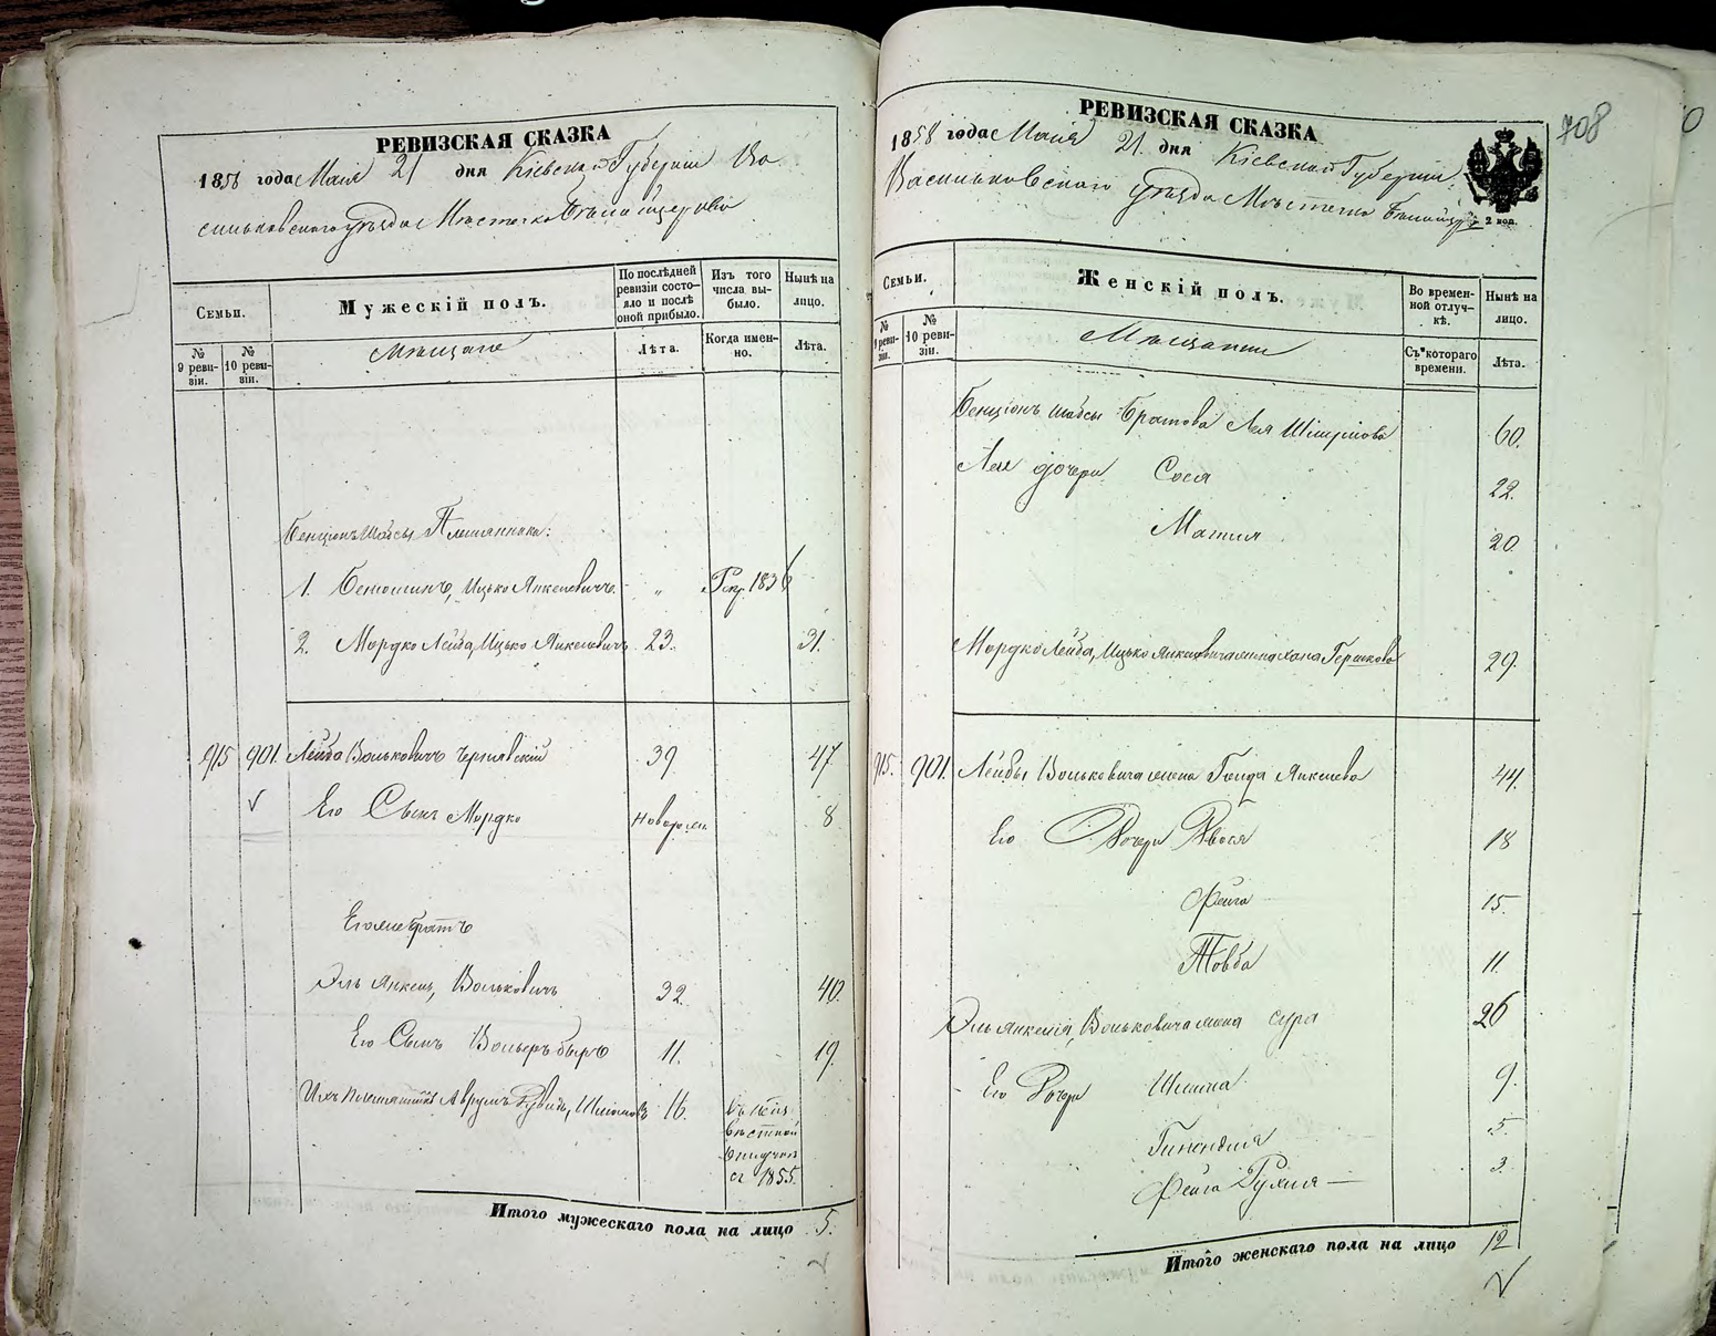 РЕВИЗСКАЯ СКАЗКА
1858 года Маія 21 дня Кіевской Губерніи Ва
сильковскаго уѣзда Мѣстечка Бѣлой церкви
Семьи.
Мужескій полъ.
По послѣдней ревизіи состояло и послѣ оной прибыло.
Изъ того числа выбыло.
Нынѣ на лицо.
№ 9 ревизіи.
№ 10 ревизіи.
Мѣщане
Лѣта.
Когда именно.
Лѣта.
Бенціонъ Шабсы Племянники:
1. Бенюминъ, Ицько Янкелевичъ " 1836
2. Мордко Лейба, Ицько Янкелевичъ 23. 31.
915 901. Лейба Вольковичъ Чернявскій 39 47.
Его Сынъ Мордко Новорож. 8
Его же братъ
Эль Янкель, Вольковичъ 32. 40.
Его Сынъ Вольф 11. 19.
Ихъ племянникъ Аврумъ Рувинъ, Шлiомовъ 16. въ неиз
вѣстной
отлучкѣ
съ 1855.
Итого мужескаго пола на лицо 5.
708
РЕВИЗСКАЯ СКАЗКА
1858 года Маія 21 дня Кіевской Губерніи
Васильковскаго уѣзда Мѣстечка Бѣлой
2 коп.
Семьи.
Женскій полъ.
Во временной отлучкѣ.
Нынѣ на лицо.
№ 9 ревизіи.
№ 10 ревизіи.
Мѣщанки
Съ котораго времени.
Лѣта.
Бенціонъ Шабсы Братова Лея 60.
Леи дочери Сося 22.
Матля 20.
Мордко Лейба, Ицько Янкелевича жена Хана Гершкова 29.
915. 901. Лейбы Вольковича жена Голда Янкелева 44.
Его Дочери Двося 18
Фейга 15.
Товба 11.
Эль Янкеля, Вольковича жена Сура 26
Его Дочери Шлима 9.
Гинендля 5.
Фейга Рухля 3.
Итого женскаго пола на лицо 12